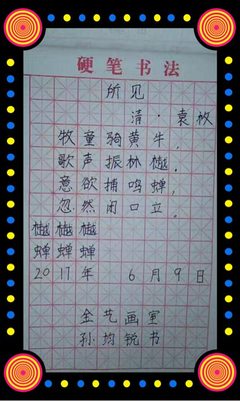 硬笔书法
所见
清·袁枚
牧童骑黄牛，
歌声振林樾，
意欲捕鸣蝉，
忽然闭口立。
樾樾樾
蝉蝉蝉
2017年 6月9日
金艺画室
孙均锐书